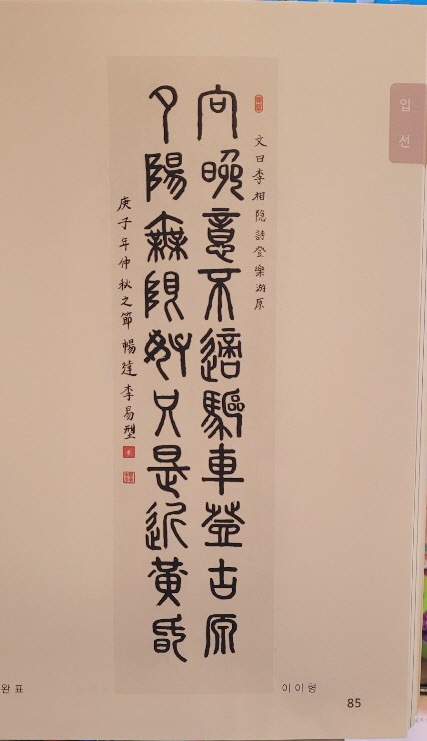 입
선
文曰李相隐詩登樂游原
向晚意不適驅車登古原
夕陽無限好只是近黃昏
庚子年仲秋之節 暢達 李易型
완표
이이형
85